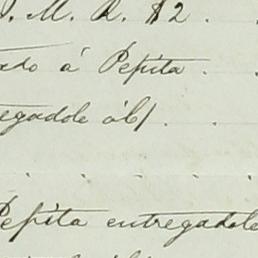 M. R. $2.
ado á Pepita.
egadole ábl.
Pepita entregadole